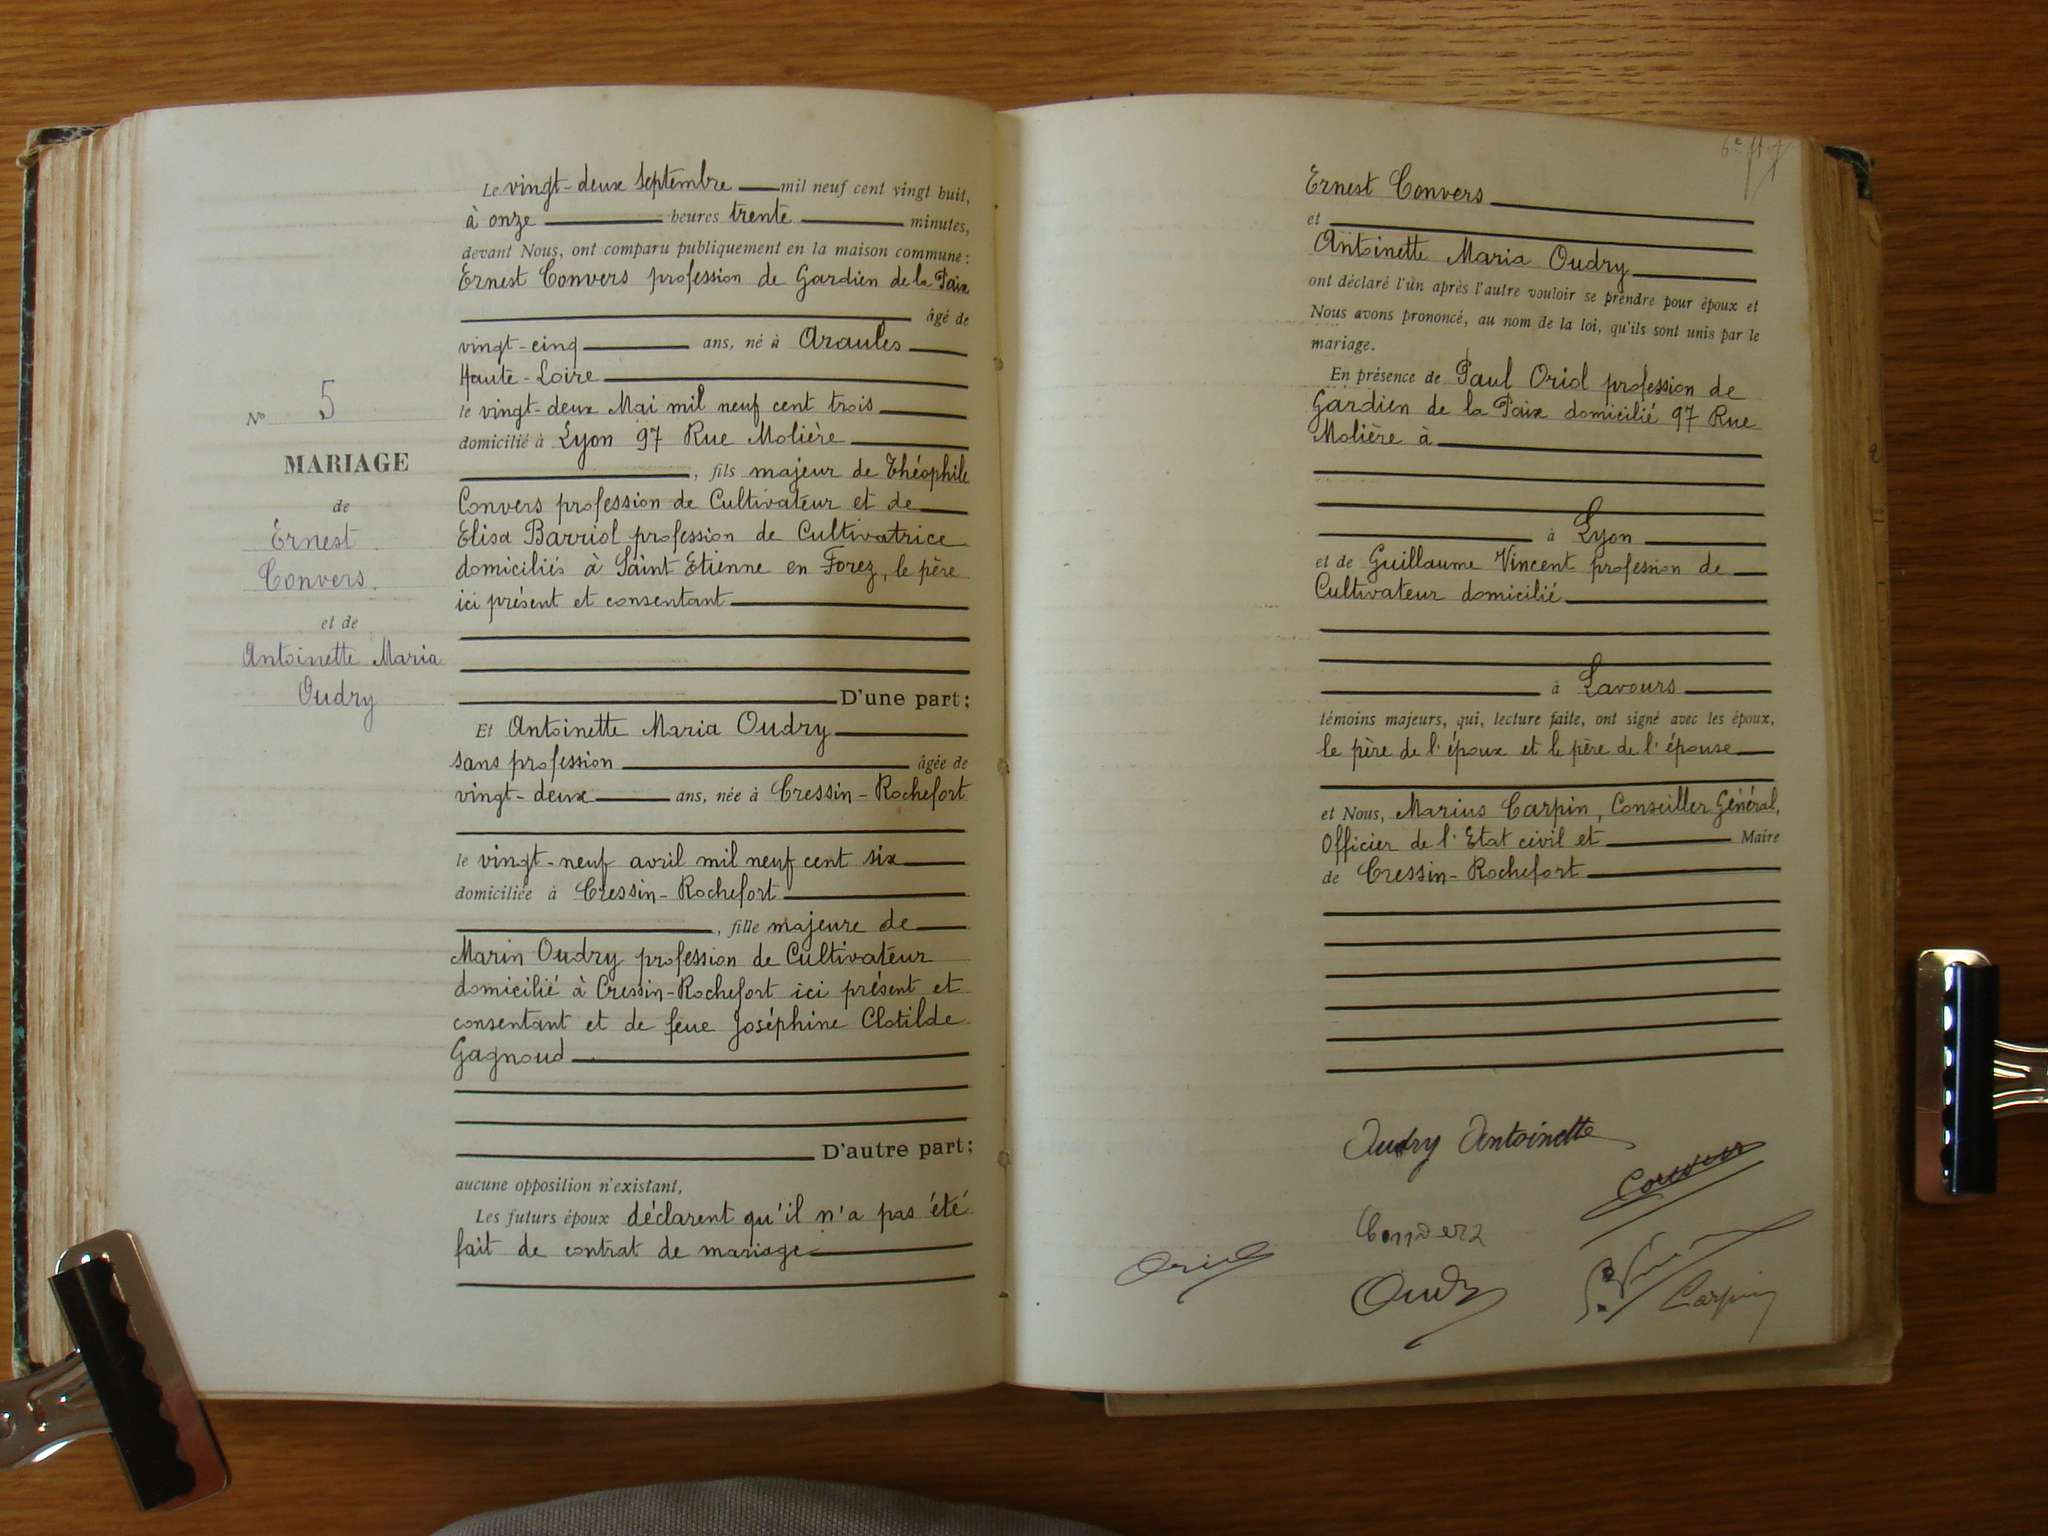 Le vingt-deux septembre mil neuf cent vingt huit,
à onze heures trente minutes,
devant Nous, ont comparu publiquement en la maison commune :
Ernest Convers profession de Gardien de la Paix
âgé de
vingt-cinq ans, né à Araules
Haute-Loire
le vingt-deux Mai mil neuf cent trois
domicilié à Lyon 97 Rue Molière
, fils majeur de Théophile
Convers profession de Cultivateur et de
Elisa Barriol profession de Cultivatrice
domiciliés à Saint Etienne en Forez, le père
ici présent et consentant
D'une part ;
Et Antoinette Maria Oudry
sans profession âgée de
vingt-deux ans, née à Cressin-Rochefort
le vingt-neuf avril mil neuf cent six
domiciliée à Cressin-Rochefort
, fille majeure de
Marin Oudry profession de Cultivateur
domicilié à Cressin-Rochefort ici présent et
consentant et de feue Joséphine Clotilde
Gagnoud
D'autre part ;
aucune opposition n'existant,
Les futurs époux déclarent qu'il n'a pas été
fait de contrat de mariage
N° 5
MARIAGE
de
Ernest
Convers
et de
Antoinette Maria
Oudry
Ernest Convers
et
Antoinette Maria Oudry
ont déclaré l'un après l'autre vouloir se prendre pour époux et
Nous avons prononcé, au nom de la loi, qu'ils sont unis par le
mariage.
En présence de Paul Oriol profession de
Gardien de la Paix domicilié 97 Rue
Molière à
à Lyon
et de Guillaume Vincent profession de
Cultivateur domicilié
à Lavours
témoins majeurs, qui, lecture faite, ont signé avec les époux,
le père de l'époux et le père de l'épouse
et Nous, Marius Carpin, Conseiller Général,
Officier de l'Etat civil et Maire
de Cressin-Rochefort
Oudry Antoinette
Convers
Convers
Oriol
Oudry
Carpin